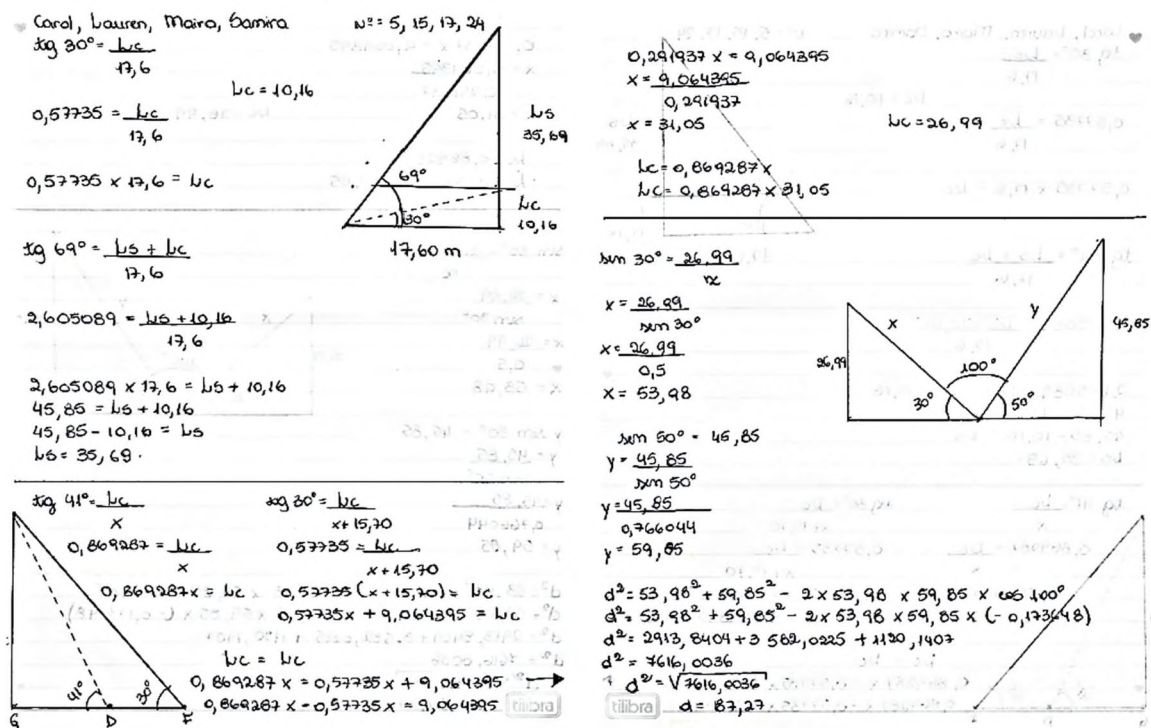 Carol, Lauren, Maira, Samira Nº= 5, 15, 17, 24
tg 30° = Lc
17,6
Lc = 10,16
0,57735 = Lc
17,6
0,57735 x 17,6 = Lc
69°
30°
Ls
35,69
Lc
10,16
17,60 m
tg 69° = Ls + Lc
17,6
2,605089 = Ls + 10,16
17,6
2,605089 x 17,6 = Ls + 10,16
45,85 = Ls + 10,16
45,85 - 10,16 = Ls
Ls = 35,69.
tg 41° = Lc
x
0,869287 = Lc
x
0,869287x = Lc
tg 30° = Lc
x + 15,70
0,57735 = Lc
x + 15,70
0,57735 (x + 15,70) = Lc
0,57735x + 9,064395 = Lc
Lc = Lc
0,869287 x = 0,57735x + 9,064395
0,869287 x - 0,57735x = 9,064395
41° 30°
G D F
tilibra
0,291937 x = 9,064395
x = 9,064395
0,291937
x = 31,05
Lc = 26,99
Lc = 0,869287 x
Lc = 0,869287 x 31,05
sen 30° = 26,99
x
x = 26,99
sen 30°
x = 26,99
0,5
x = 53,98
sen 50° = 45,85
y = 45,85
sen 50°
y = 45,85
0,766044
y = 59,85
26,99
x
y
45,85
100°
30° 50°
d² = 53,98² + 59,85² - 2 x 53,98 x 59,85 x cos 100°
d² = 53,98² + 59,85² - 2 x 53,98 x 59,85 x (- 0,173648)
d² = 2913,8404 + 3 582,0225 + 1120,1407
d² = 7616,0036
d² = √7616,0036
d = 87,27.
tilibra